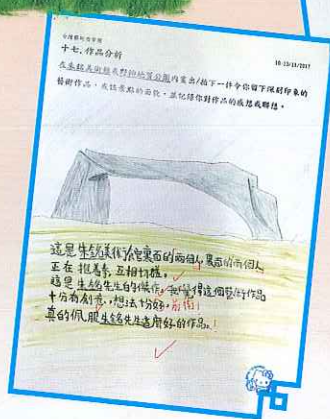 十七．作品分析
10-13/11/2017
在朱銘美術館或野柳地質公園內畫出/拍下一件令你留下深刻印象的
藝術作品，或該景點的面貌，並記錄你對作品的感想或聯想。
這是朱銘美術館裏面的兩個人，裏面的兩個人
正在推着手，互相切磋。
這是朱銘先生的傑作，我覺得這個藝術作品
十分有創意，想法十分好。
真的佩服朱銘先生造用好的作品。